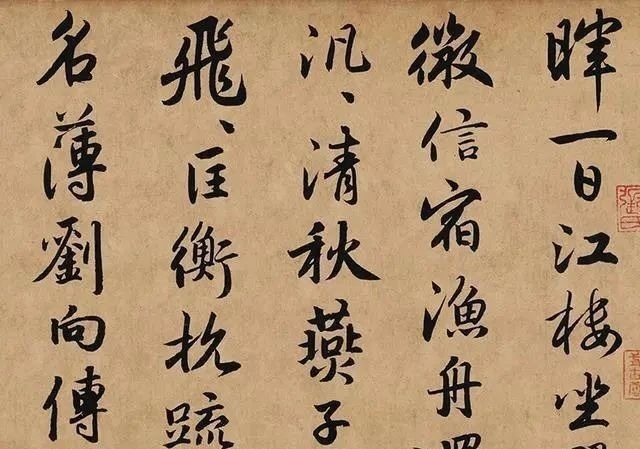 暉一日江樓坐
微信宿漁舟
汎〻清秋燕子
飛〻匡衡抗疏
名薄劉向傳